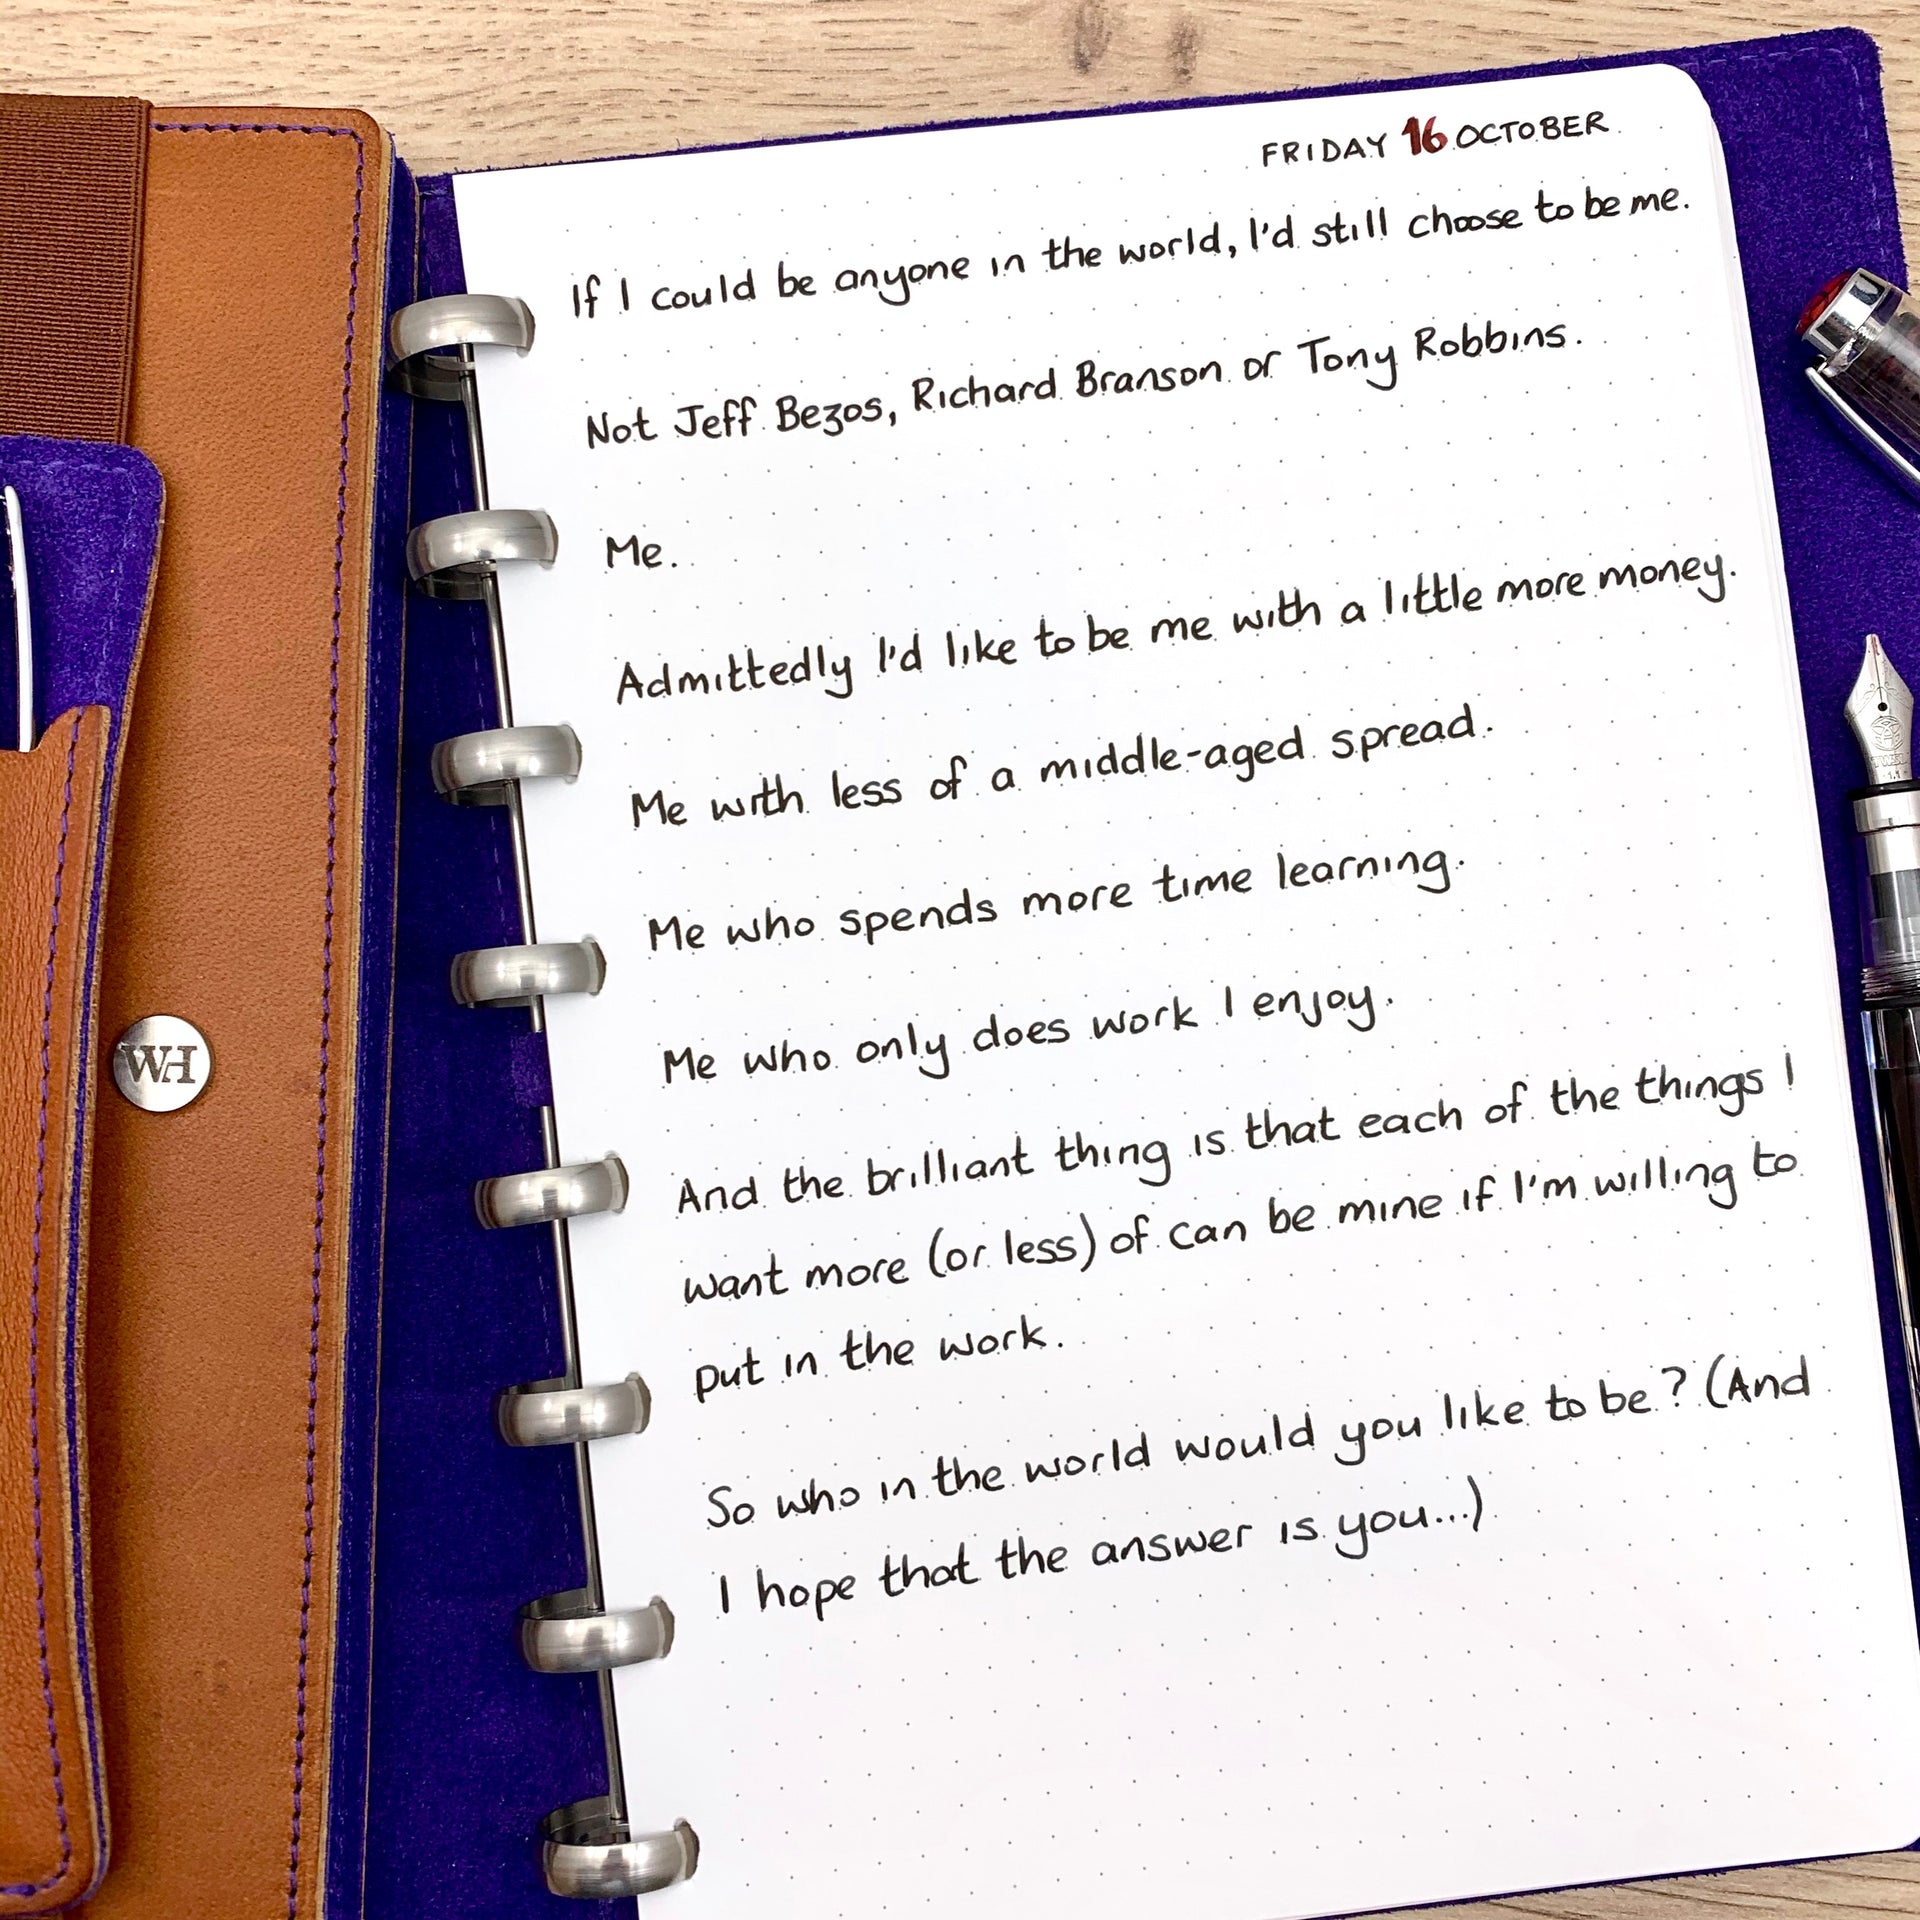 FRIDAY 16 OCTOBER
If I could be anyone in the world, I'd still choose to be me.
Not Jeff Bezos, Richard Branson or Tony Robbins.
Me.
Admittedly I'd like to be me with a little more money.
Me with less of a middle-aged spread.
Me who spends more time learning.
Me who only does work I enjoy.
And the brilliant thing is that each of the things I
want more (or less) of can be mine if I'm willing to
put in the work.
So who in the world would you like to be? (And
I hope that the answer is you...)
WH